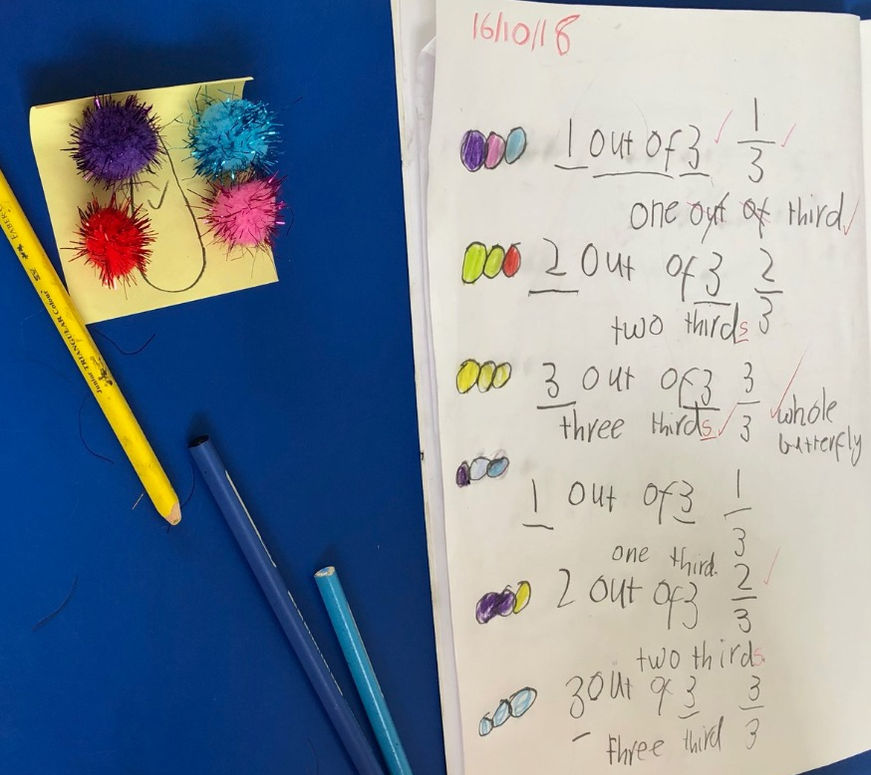 16/10/18
1 out of 3 1/3
one out of third
2 out of 3 2/3
two thirds
3 out of 3 3/3
three thirds whole
butterfly
1 out of 3 1/3
one third.
2 out of 3 2/3
two thirds
3 out of 3 3/3
three third
Junior TRIANGULAR Colour